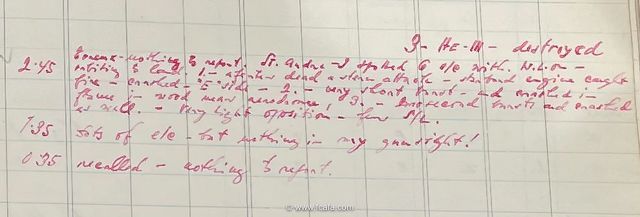 3 - HE-III - destroyed
2.45 - nothing to report. St. Andre - I spotted 6 e/a with N.L. on -
waiting to land. 1. - after dead astern attack - starboard engine caught
fire - crashed - E. side - 2. - very short burst - and crashed in
flame in wood near aerodrome, 3. - second burst and crashed
as well. - Very light opposition -
1.35 lots of e/a - but nothing in my gunsight!
0.35 recalled - nothing to report.
© www.fcafa.com